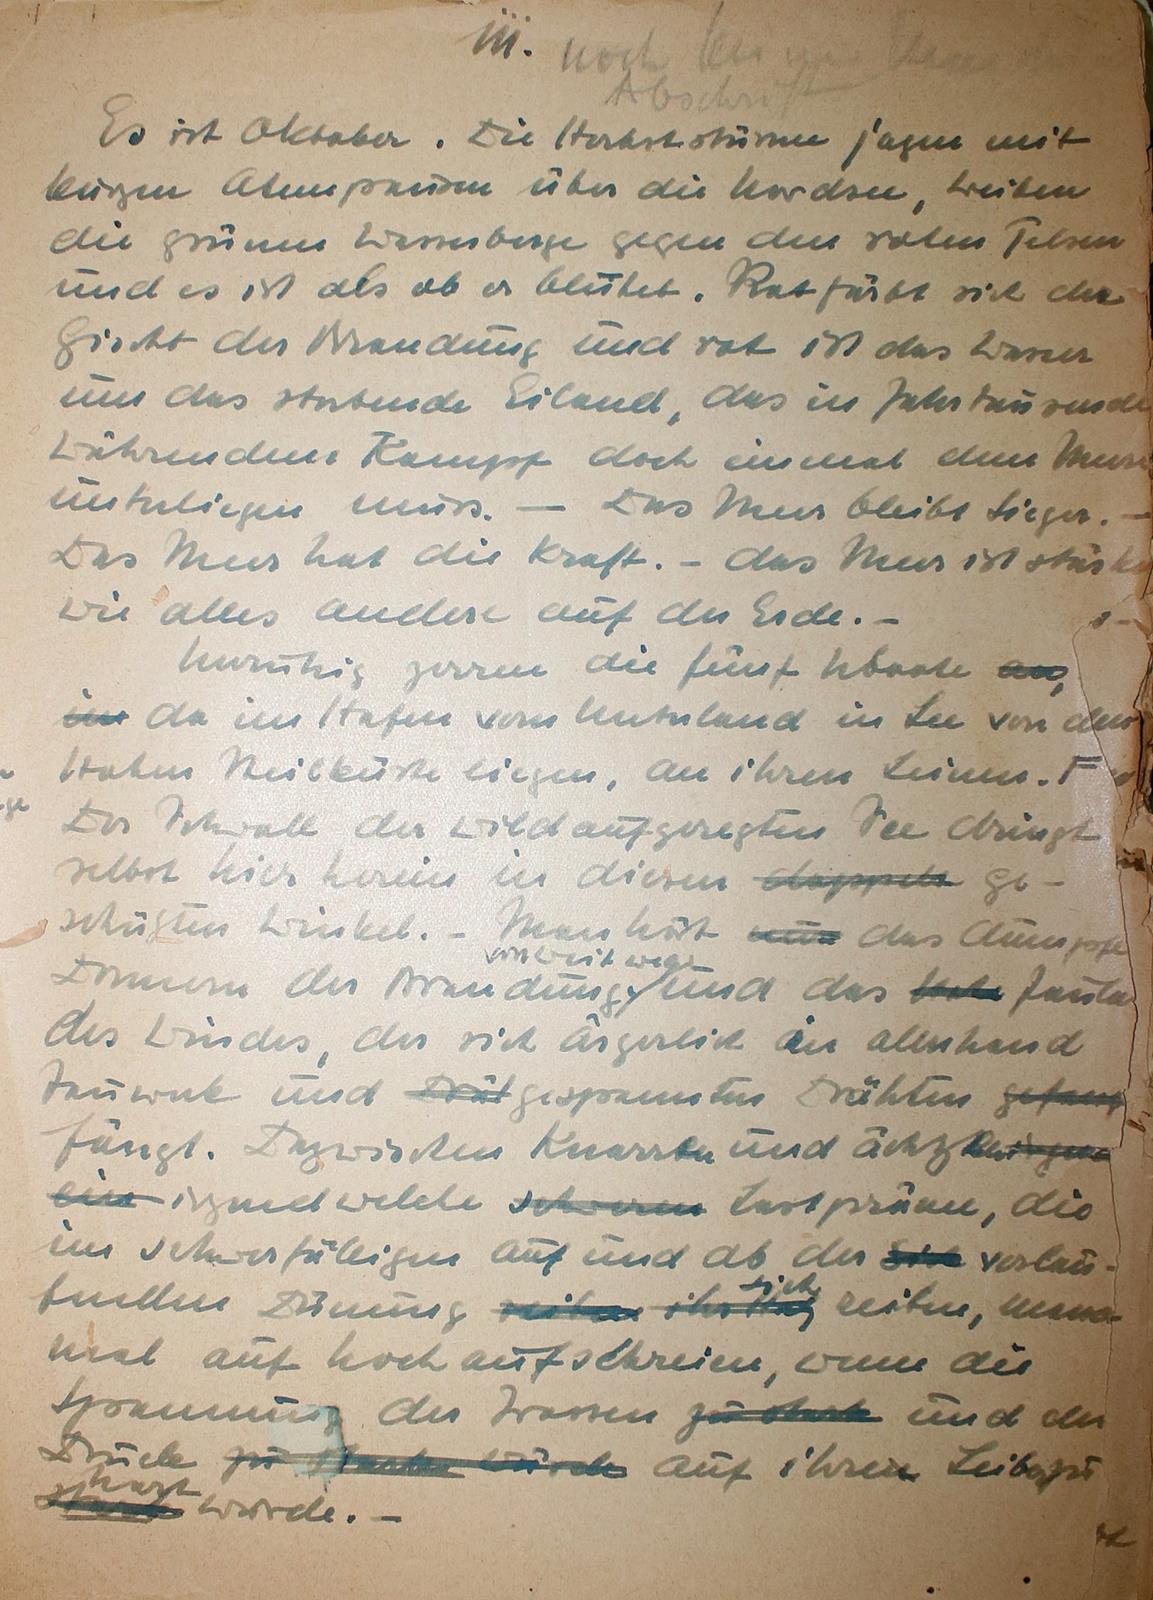 III. noch
Abschrift
Es ist Oktober. Die Herbststürme jagen mit
kurzen Atempausen über die Nordsee, treiben
die grünen Wasserberge gegen den roten Felsen
und es ist als ob er blutet. Rot färbt sich der
Gischt der Brandung und rot ist das Wasser
um das sterbende Eiland, das in Jahrtausende
währendem Kampf doch einmal dem Meere
unterliegen muss. — Das Meer bleibt Sieger. —
Das Meer hat die Kraft. – das Meer ist stärker
wie alles andere auf der Erde. –
Unruhig zerren die fünf UBoote an,
im da im Hafen vom Unterland in Lee von der
Hohen Steilküste liegen, an ihren Leinen.
Der Schwall der wildaufgeregten See dringt
selbst hier herein in diesen doppelt ge-
schützten Winkel. – Man hört nur das dumpfe
von weit weg
Donnern der Brandung und das Jaulen
des Windes, der sich ärgerlich in allerhand
Tauwerk und Drät gespannten Drähten gefang
fängt. Dazwischen Knarren und ächzen
ein irgendwelche schweren Lastpräme, die
im schwerfälligen Auf und ab der verlau-
sich
fenden Dünung reiben ihr reiben, manch-
mal auf hoch aufschreien, wenn die
Spannung der Trossen zu stark und der
Druck zu stark würde auf ihren Leib zu
hart
stark würde. –